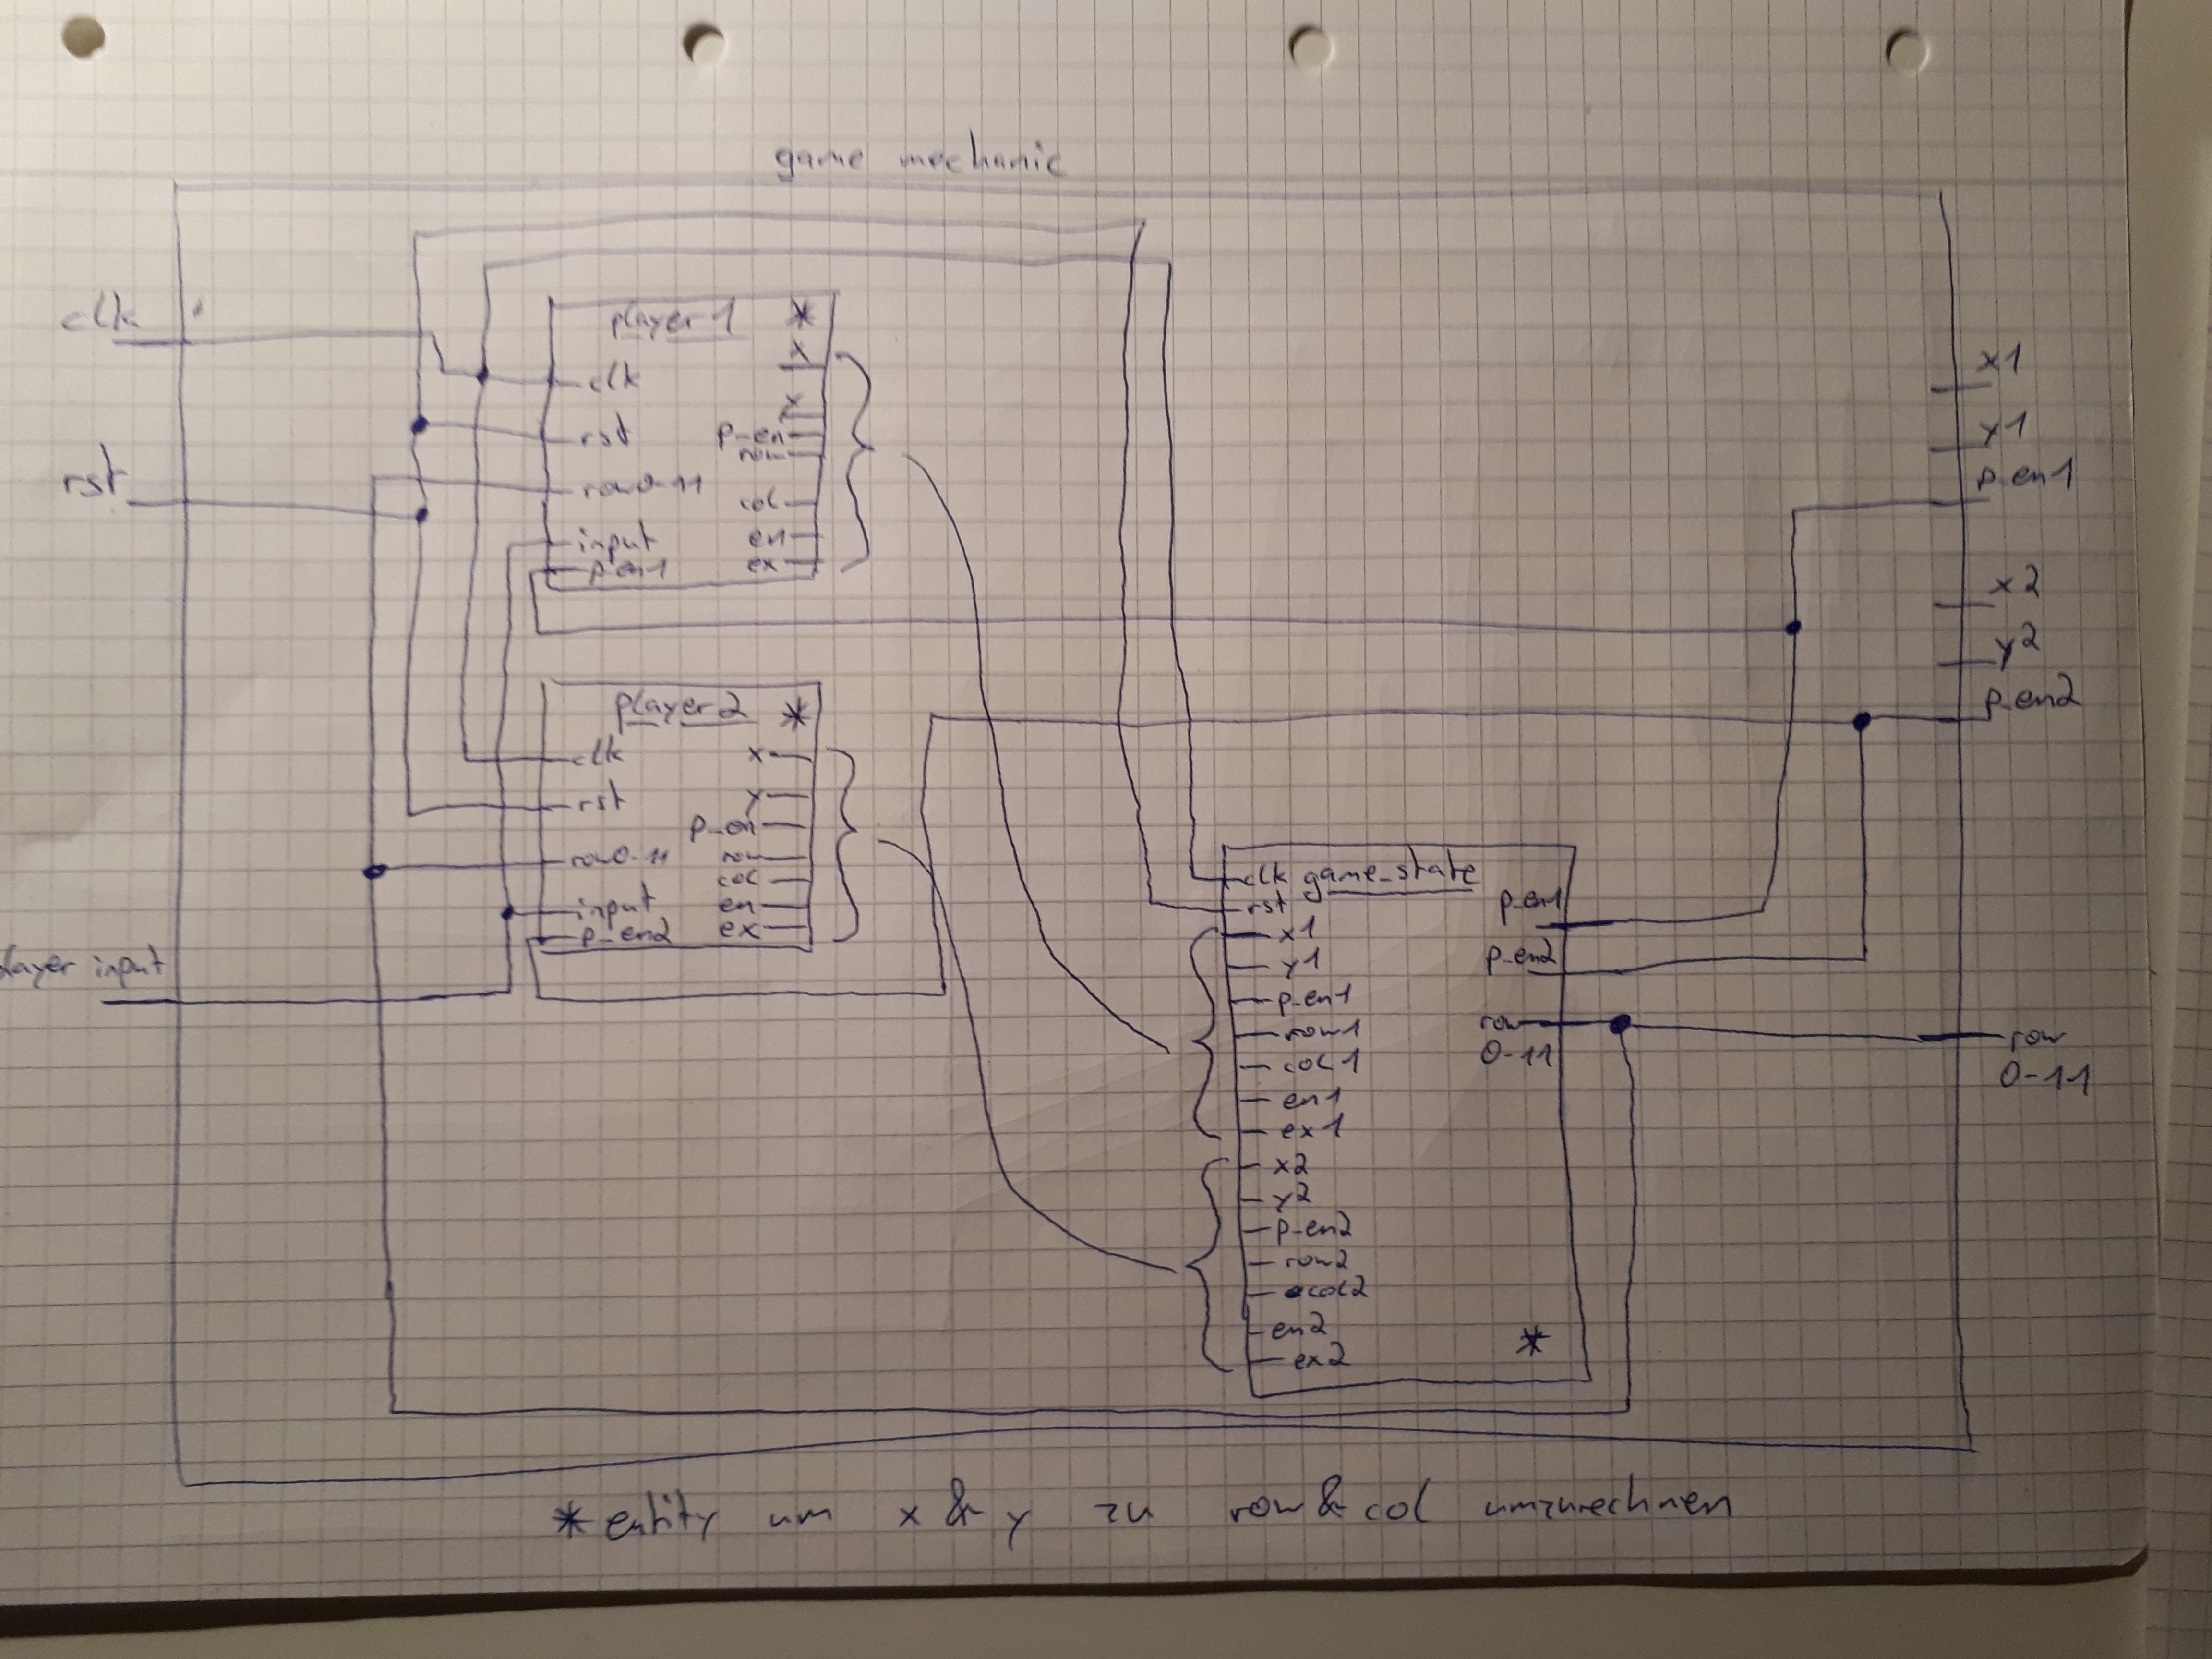 game mechanic
clk
rst
player input
player1 *
clk
rst
row0-11
input
p_en1
x
y
p_en
row
col
en
ex
player2 *
clk
rst
row0-11
input
p_en2
x
y
p_en
row
col
en
ex
game_state
clk
rst
x1
y1
p_en1
row1
col1
en1
ex1
x2
y2
p_en2
row2
col2
en2
ex2
p_en1
p_en2
row
0-11
*
x1
y1
p_en1
x2
y2
p_en2
row
0-11
* entity um x & y zu row & col umzurechnen